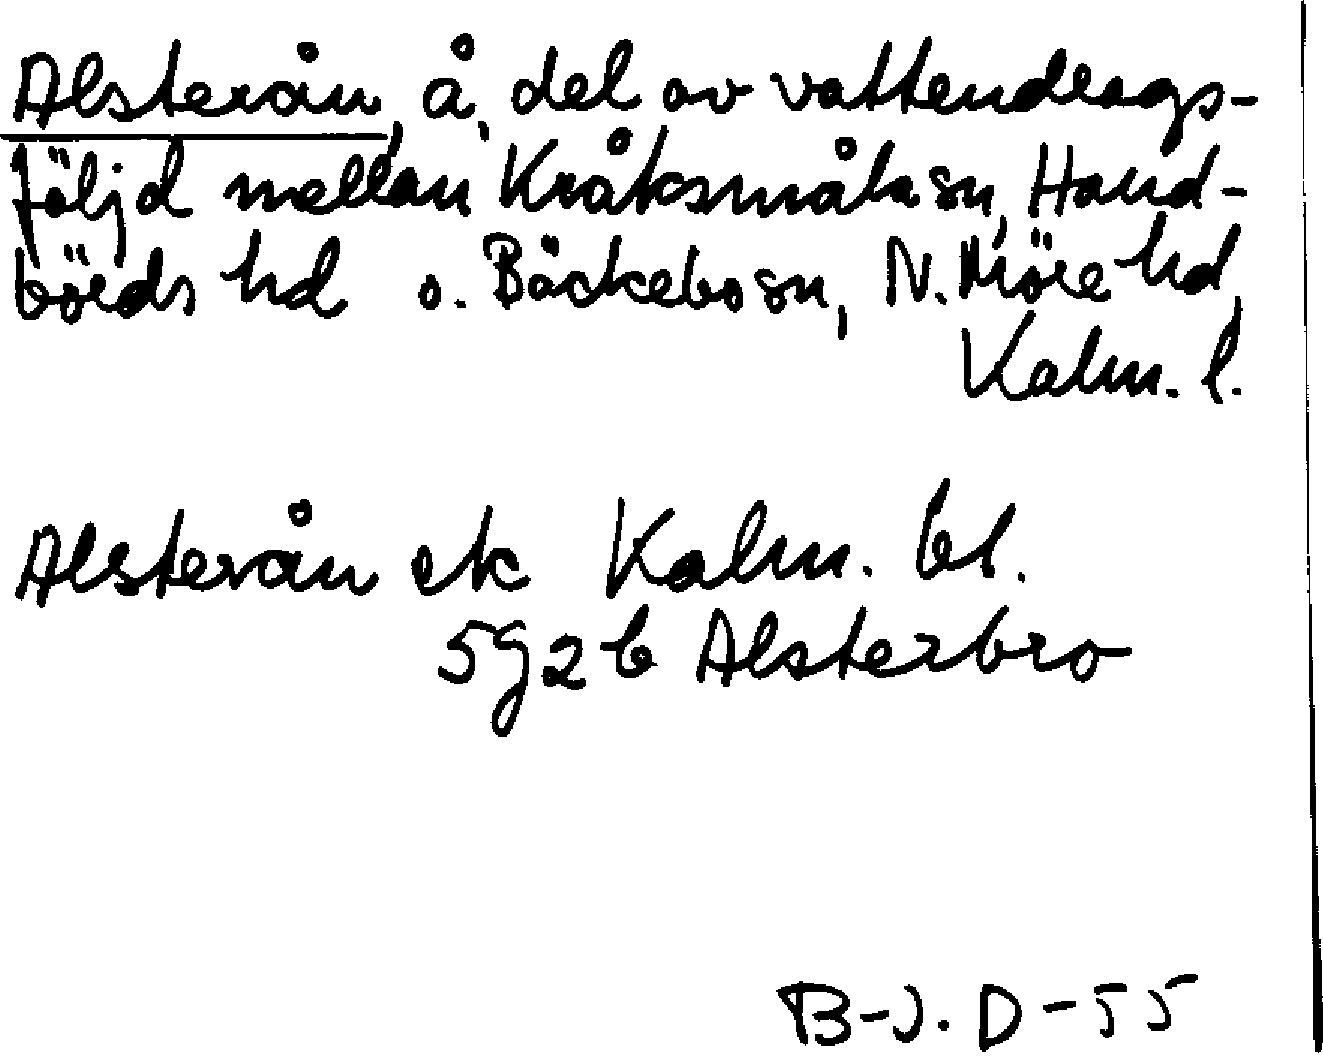 Alsterån, å, del av vattendrags-
följd mellan Kråksmåla sn, Hand-
börds hd o. Bäckebo sn, N. Möre hd,
Kalm. l.
Alsterån ek Kalm. bl.
5g2b Alsterbro
B-J. D-55